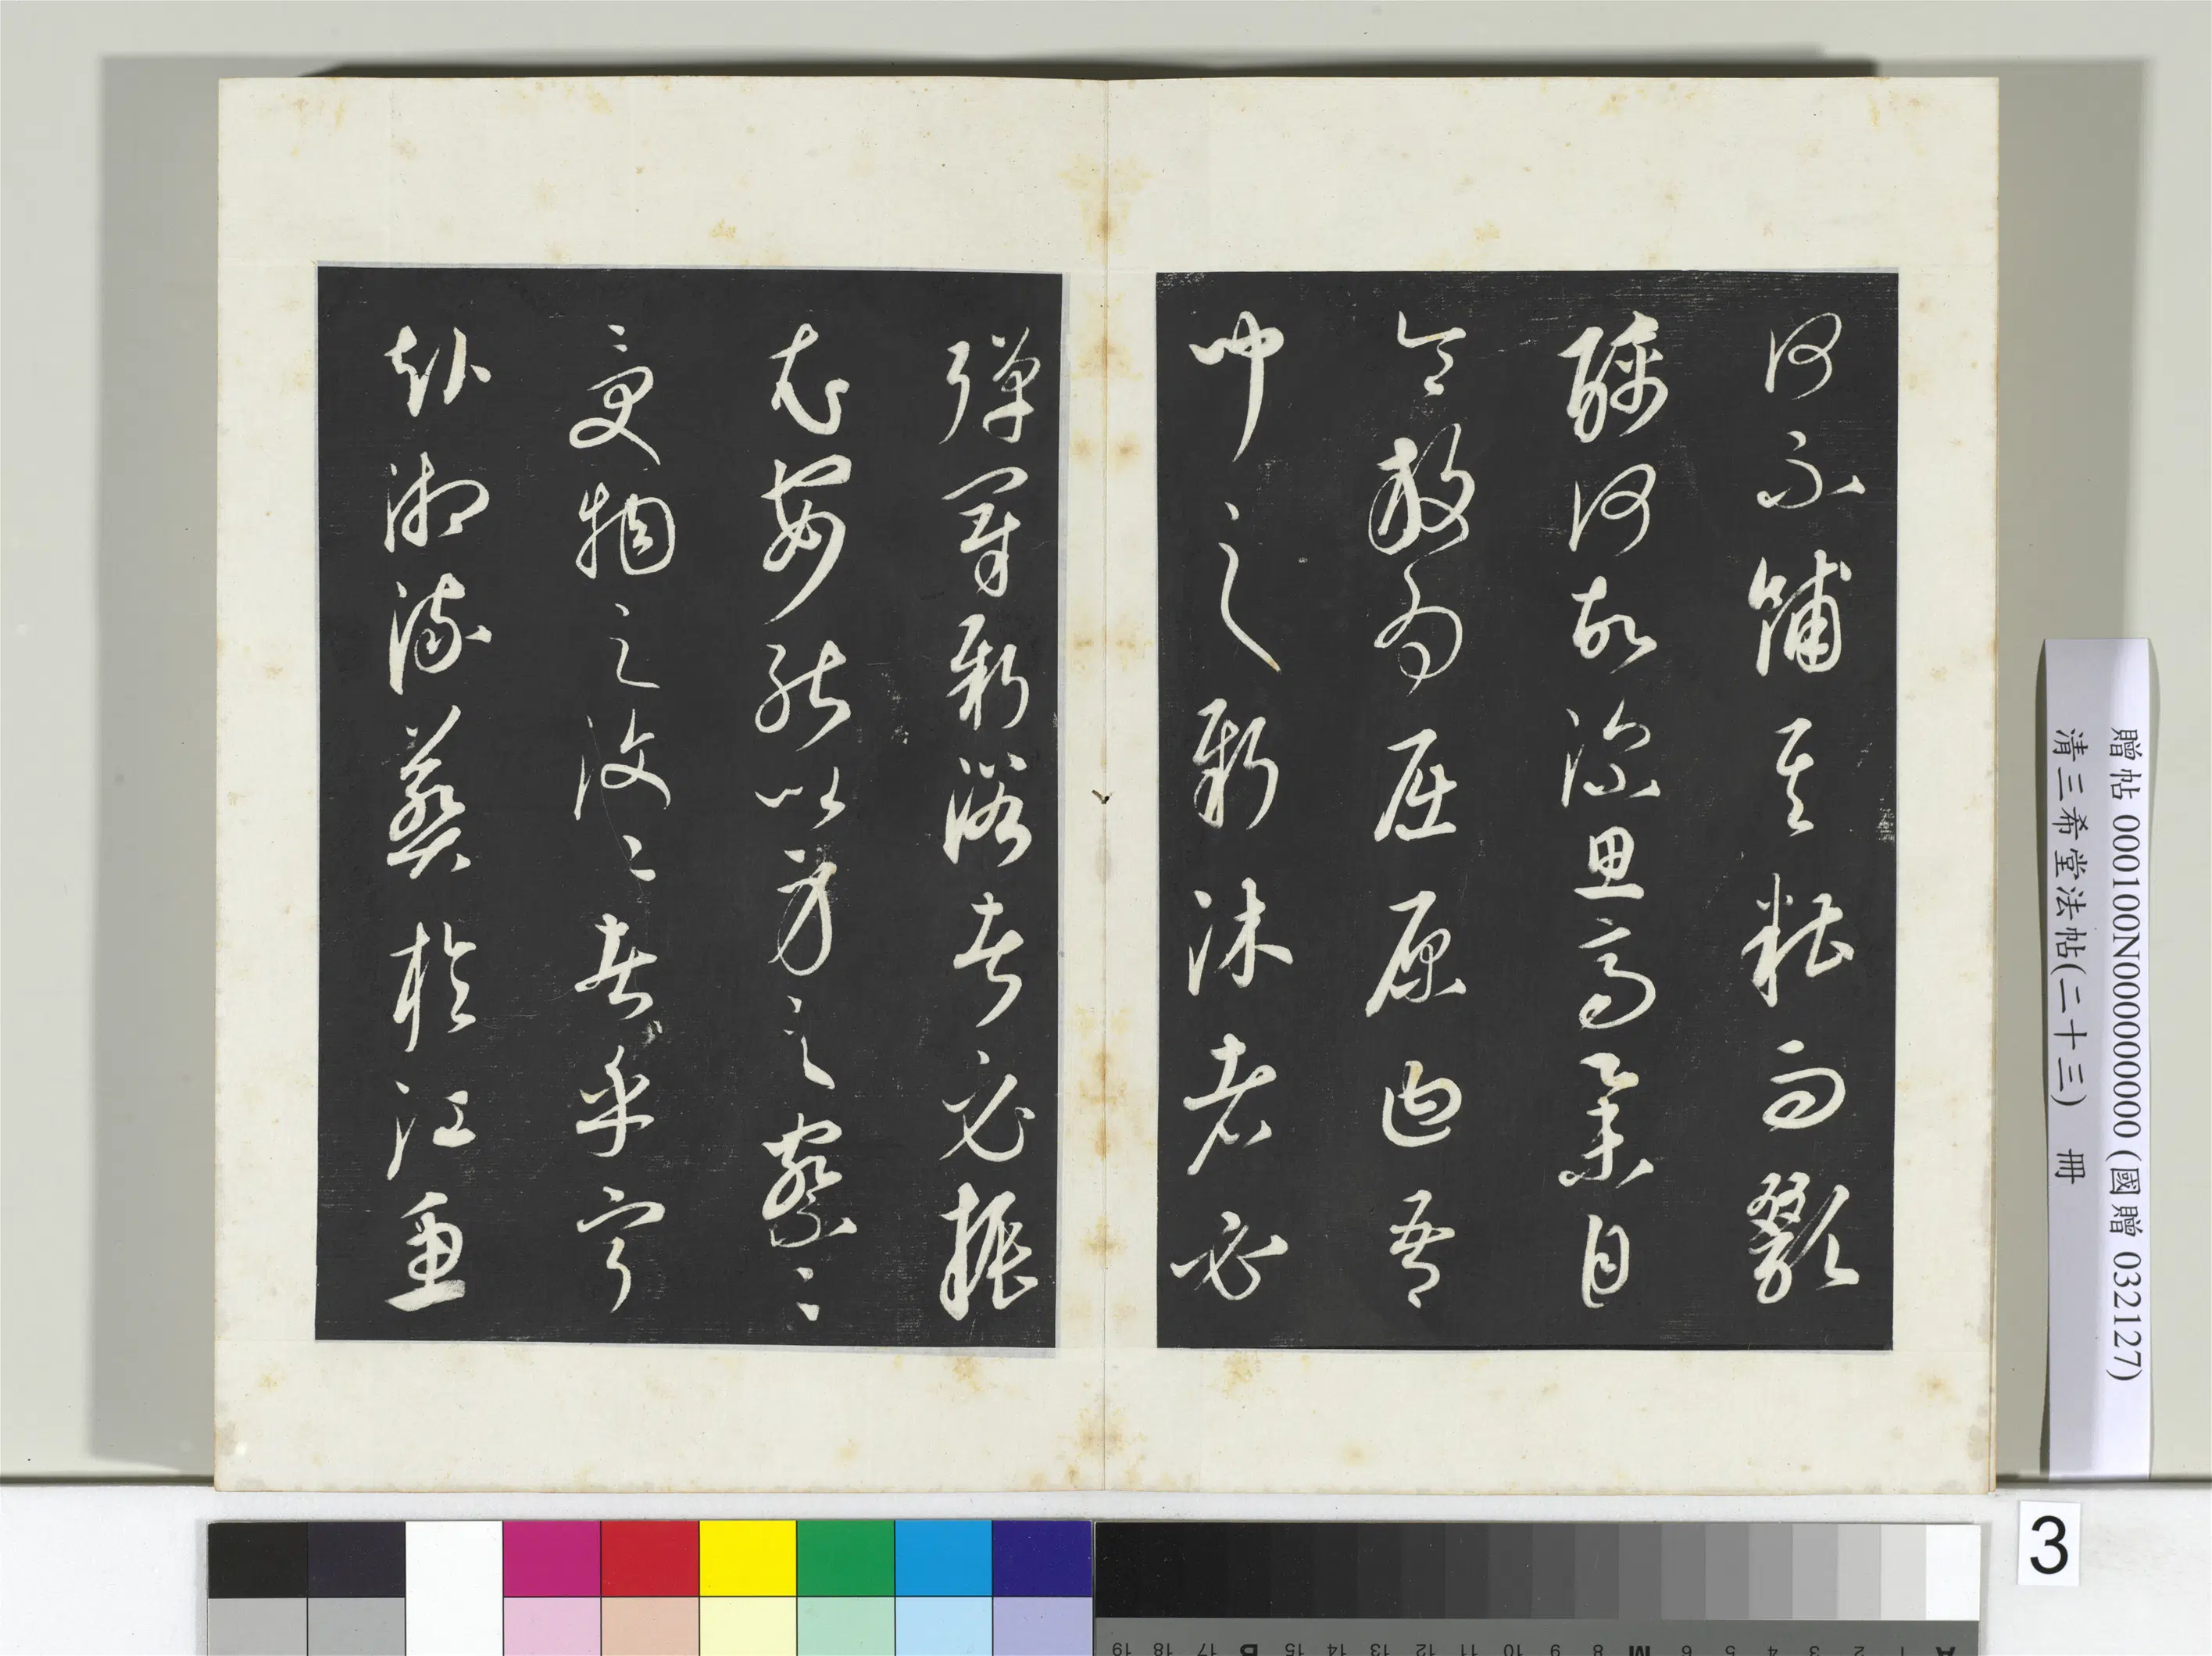 何不餔其糟而歠
醨何故深思高舉自
令放為屈原曰吾
聞之新沐者必
彈冠新浴者必振
衣安能以身之察〻
受物之汶〻者乎寧
赴湘流葬於江魚
贈帖 000100N000000000 (國贈 032127)
清三希堂法帖(二十三) 冊
3
A 1 2 3 4 5 6 M 8 9 10 11 12 13 14 15 B 17 18 19